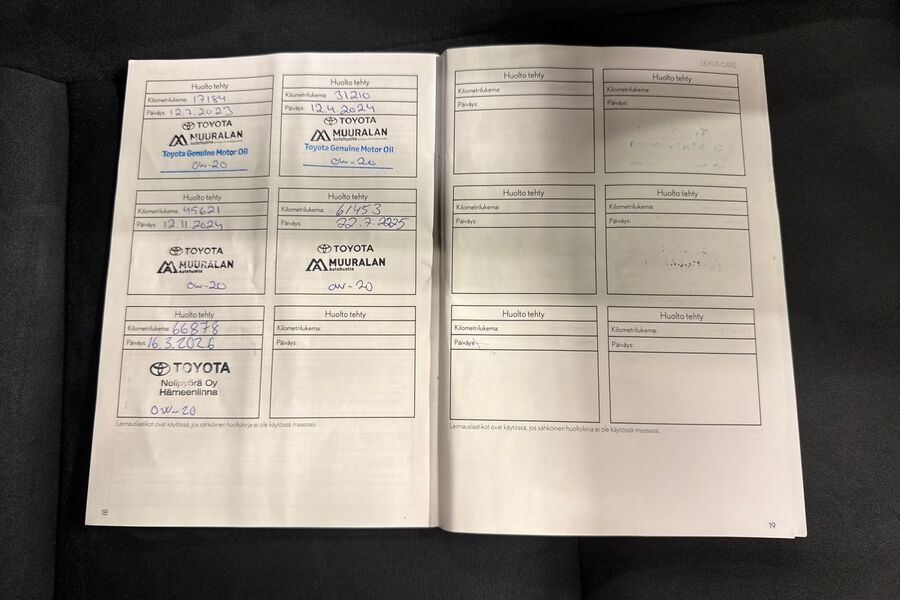 Huolto tehty
Kilometrilukema: 17184
Päiväys: 12.7.2023
TOYOTA
MUURALAN
Autohuolto
Toyota Genuine Motor Oil
0W-20
Huolto tehty
Kilometrilukema: 31210
Päiväys: 12.4.2024
TOYOTA
MUURALAN
Autohuolto
Toyota Genuine Motor Oil
0W-20
Huolto tehty
Kilometrilukema: 45621
Päiväys: 12.11.2024
TOYOTA
MUURALAN
Autohuolto
0W-20
Huolto tehty
Kilometrilukema: 61453
Päiväys: 22.7.2025
TOYOTA
MUURALAN
Autohuolto
0W-20
Huolto tehty
Kilometrilukema: 66878
Päiväys: 16.3.2026
TOYOTA
Nelipyörä Oy
Hämeenlinna
0W-20
Huolto tehty
Kilometrilukema:
Päiväys:
Leimauslaatikot ovat käytössä, jos sähköinen huoltokirja ei ole käytössä maassasi.
18
LEXUS CARE
Huolto tehty
Kilometrilukema:
Päiväys:
Huolto tehty
Kilometrilukema:
Päiväys:
Huolto tehty
Kilometrilukema:
Päiväys:
Huolto tehty
Kilometrilukema:
Päiväys:
Huolto tehty
Kilometrilukema:
Päiväys:
Huolto tehty
Kilometrilukema:
Päiväys:
Leimauslaatikot ovat käytössä, jos sähköinen huoltokirja ei ole käytössä maassasi.
19